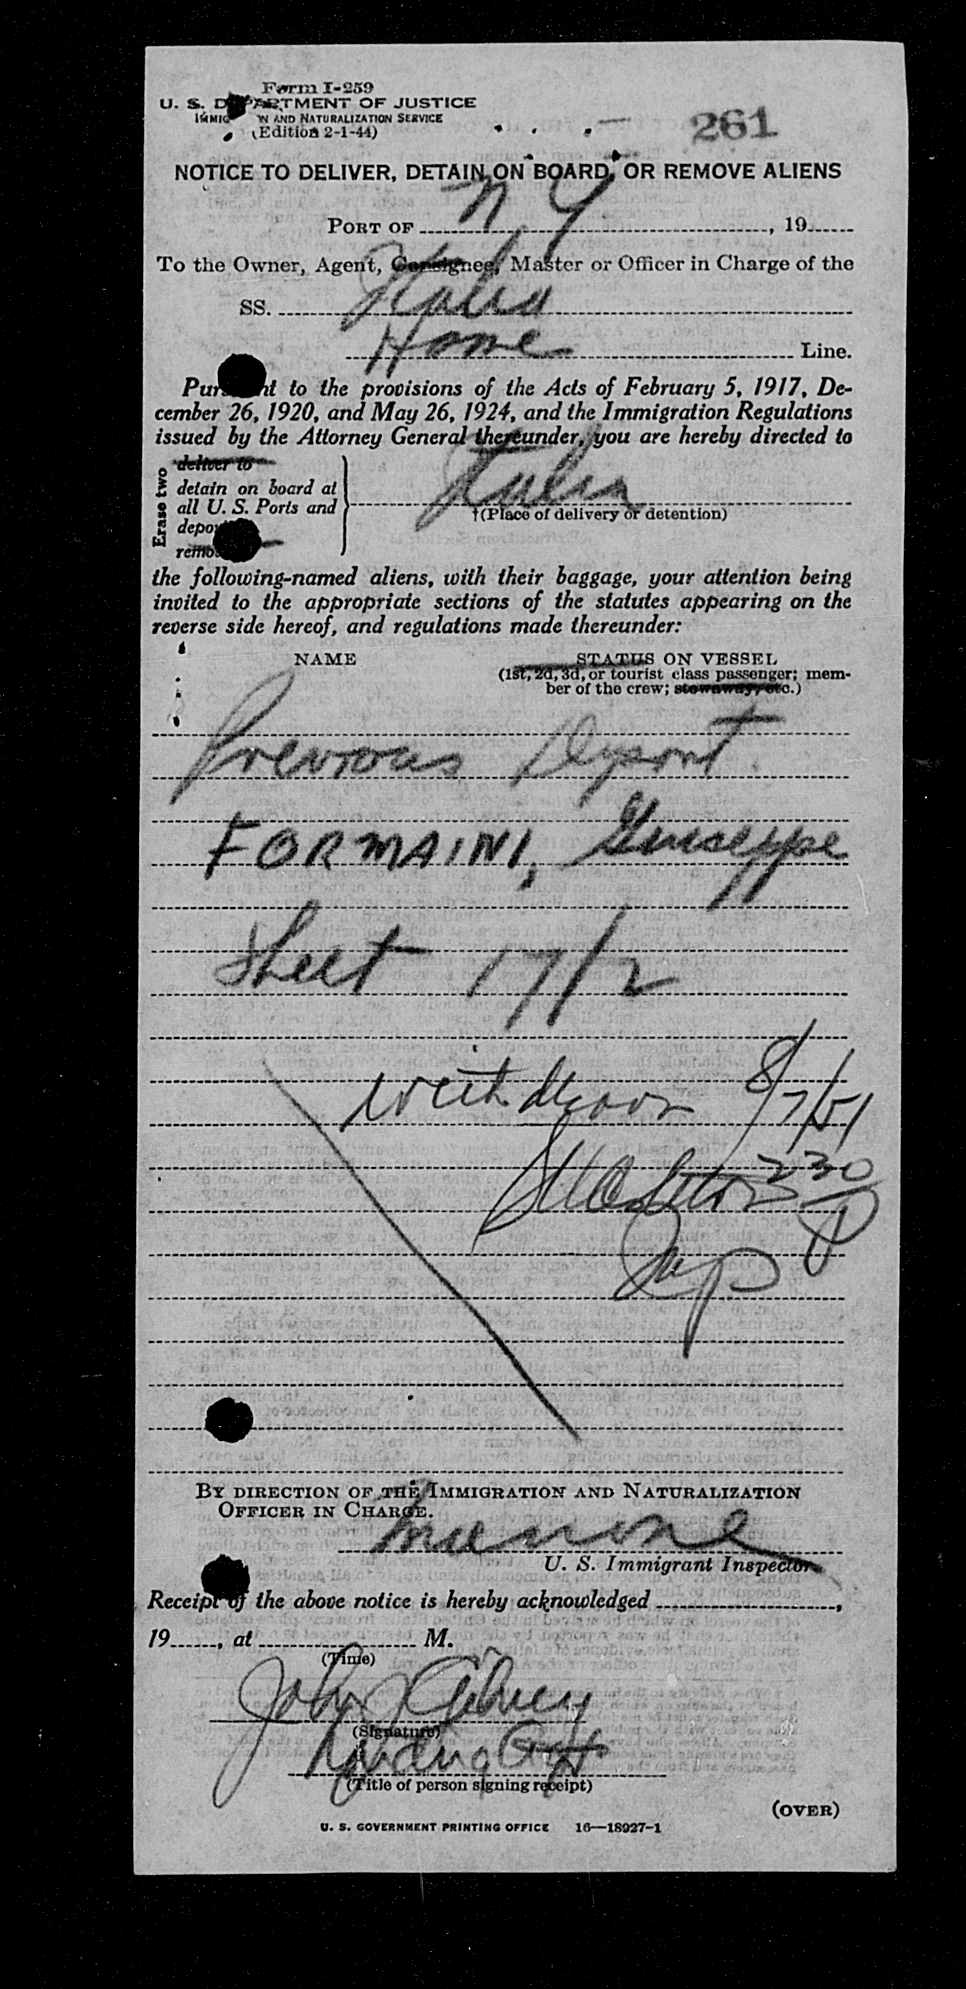 Form I-259
U. S. DEPARTMENT OF JUSTICE
IMMIG N AND NATURALIZATION SERVICE
(Edition 2-1-44)
261
NOTICE TO DELIVER, DETAIN ON BOARD, OR REMOVE ALIENS
PORT OF N Y , 19
To the Owner, Agent, Consignee, Master or Officer in Charge of the
SS. Italia
Home Line.
Pursuant to the provisions of the Acts of February 5, 1917, De-
cember 26, 1920, and May 26, 1924, and the Immigration Regulations
issued by the Attorney General thereunder, you are hereby directed to
Erase two
deliver to
detain on board at
all U. S. Ports and
depo
remo
Italia
†(Place of delivery or detention)
the following-named aliens, with their baggage, your attention being
invited to the appropriate sections of the statutes appearing on the
reverse side hereof, and regulations made thereunder:
NAME STATUS ON VESSEL
(1st, 2d, 3d, or tourist class passenger; mem-
ber of the crew; stowaway, etc.)
Previous Deport.
FORMAINI, Giuseppe
Sheet 17/2
Withdrawn 8/7/51
230
BY DIRECTION OF THE IMMIGRATION AND NATURALIZATION
OFFICER IN CHARGE.
U. S. Immigrant Inspector
Receipt of the above notice is hereby acknowledged ,
19 , at M.
(Time)
John
(Signature)
(Title of person signing receipt)
(OVER)
U. S. GOVERNMENT PRINTING OFFICE 16—18927-1